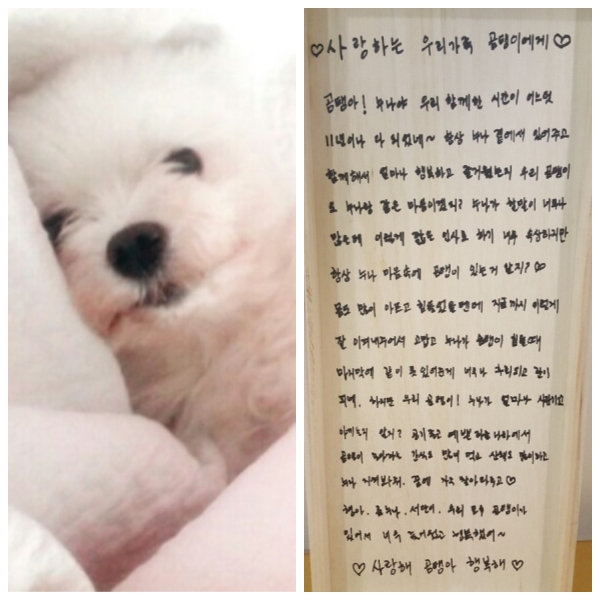 ♡사랑하는 우리가족 곰탱이에게♡
곰탱아! 누나야 우리 함께한 시간이 어느덧
11년이나 다 되었네~ 항상 누나 곁에서 있어주고
함께해서 얼마나 행복하고 즐거웠는지 우리 곰탱이
도 누나랑 같은 마음이겠지? 누나가 할말이 너무나
많은데 이렇게 짧은 인사로 하기 너무 속상하지만
항상 누나 마음속에 곰탱이 있는거 알지?♡
몸도 많이 아프고 힘들었을텐데 지금까지 이렇게
잘 이겨내주어서 고맙고 누나가 곰탱이 힘들때
마지막에 같이 못있어준게 너무나 후회되고 맘이
하지만 우리 곰탱이! 누나가 얼마나 사랑하고
아끼는지 알지? 공기좋고 예쁜 하늘나라에서
곰탱이 좋아하는 간식도 많이 먹고 산책도 많이하고
누나 지켜봐줘. 꿈에 가끔 찾아와주고♡
형아. 큰누나. 우리 모두 곰탱이가
있어서 너무 즐거웠고 행복했어~
♡사랑해 곰탱아 행복해♡